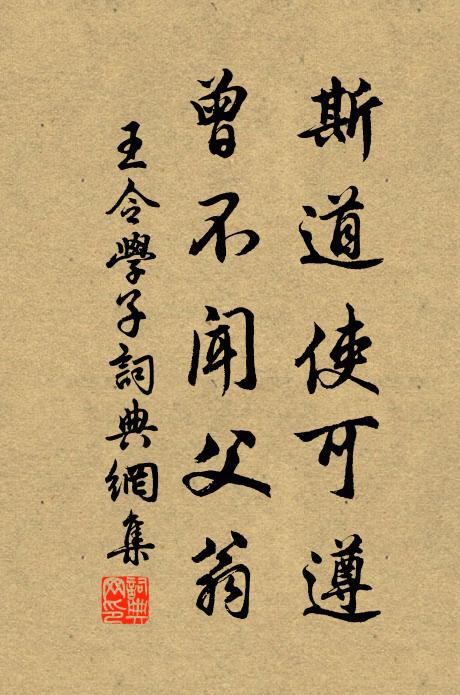 斯道使可遵
曾不闻父翁
王令學子詞典網集
詞典网印